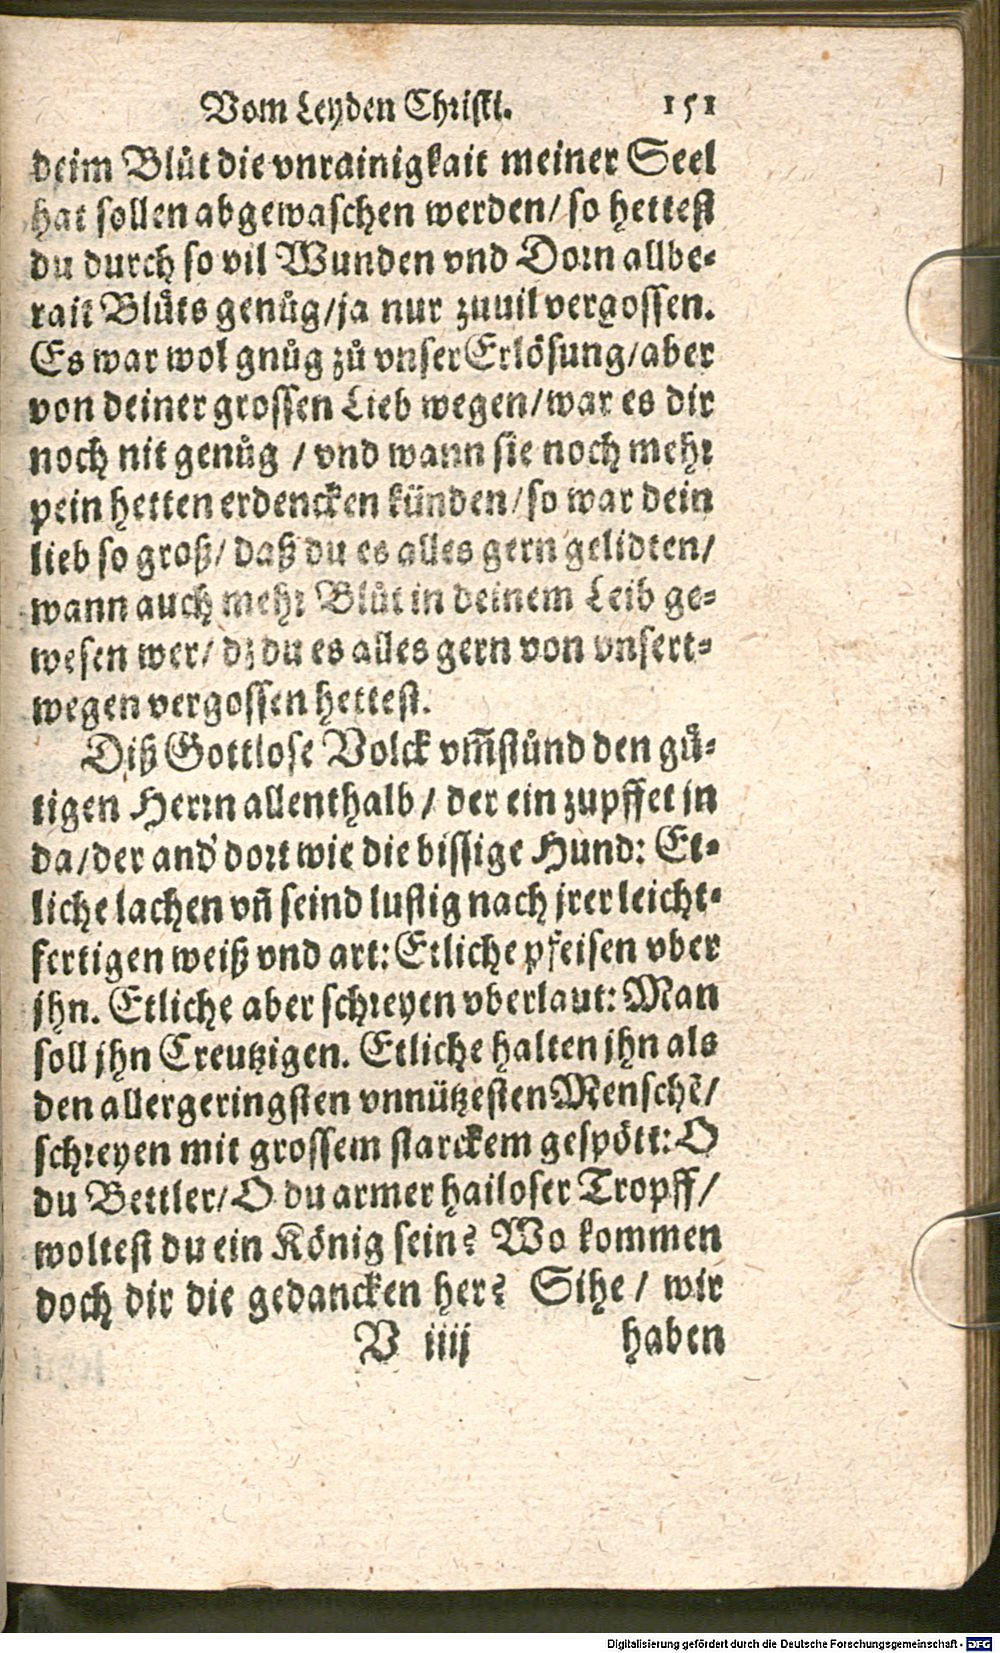 Vom Leyden Christi. 151
deim Blůt die vnrainigkait meiner Seel
hat sollen abgewaschen werden/ so hettest
du durch so vil Wunden vnd Dorn allbe-
rait Blůts genůg/ja nur zuuil vergossen.
Es war wol gnůg zů vnser Erlösung/aber
von deiner grossen Lieb wegen/war es dir
noch nit genůg / vnd wann sie noch mehr
pein hetten erdencken künden/so war dein
lieb so groß/ daß du es alles gern gelidten/
wann auch mehr Blůt in deinem Leib ge-
wesen wer/ dz du es alles gern von vnsert-
wegen vergossen hettest.
Diß Gottlose Volck vm̃stůnd den gü-
tigen Herrn allenthalb / der ein zupffet jn
da/der and' dort wie die bissige Hund: Et-
liche lachen vñ seind lustig nach jrer leicht-
fertigen weiß vnd art: Etliche pfeisen vber
jhn. Etliche aber schreyen vberlaut: Man
soll jhn Creutzigen. Etliche halten jhn als
den allergeringsten vnnützesten Menschẽ/
schreyen mit grossem starckem gespött: O
du Bettler/ O du armer hailoser Tropff/
woltest du ein König sein? Wo kommen
doch dir die gedancken her? Sihe / wir
V iiij haben
Digitalisierung gefördert durch die Deutsche Forschungsgemeinschaft - DFG